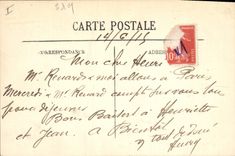 I
CARTE POSTALE
CORRESPONDANCE
ADRESSE
Mon cher Henri
Mr Renard & moi allons à Paris
Mercredi & Mr Renard compte sur vous
pour déjeuner
Bons Baisers à Henriette
et Jean. à Bientôt
Henry